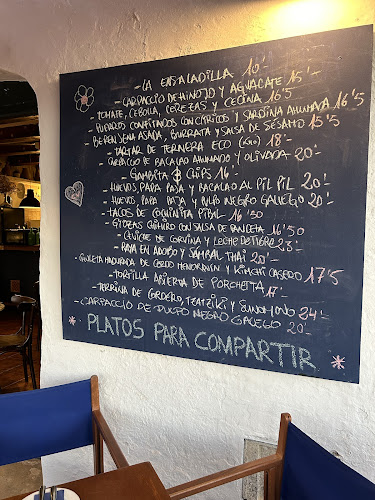 - LA ENSALADILLA 10'-
- CARPACCIO DE HINOJO Y AGUACATE 15'-
- TOMATE, CEBOLLA, CEREZAS Y CECINA 16'5
- PUERROS CONFITADOS CON CÍTRICOS Y SARDINA AHUMADA 16'5
- BERENJENA ASADA, BURRATA Y SALSA DE SÉSAMO 15'5
- TARTAR DE TERNERA ECO 18'-
- CARPACCIO DE BACALAO AHUMADO Y OLIVADA 20'-
- GAMBITA & CHIPS 16'-
- HUEVOS, PAPA PAJA Y BACALAO AL PIL PIL 20'-
- HUEVOS PAPA PAJA Y PULPO NEGRO GALLEGO 20'-
- TACOS DE COCHINITA PIBIL 16'50
- GYOZAS CHIHIRO CON SALSA DE PANCETA 16'50
- CEVICHE DE CORVINA Y LECHE DE TIGRE 23'-
- RAYA EN ADOBO Y SAMBAL THAI 20'-
- CHULETA MADURADA DE CERDO MENORQUÍN Y KIMCHI CASERO 17'5
- TORTILLA ABIERTA DE PORCHETTA 17'-
- TERRINA DE CORDERO, TZATZIKI Y 24'-
- CARPACCIO DE PULPO NEGRO GALLEGO 20'-
PLATOS PARA COMPARTIR